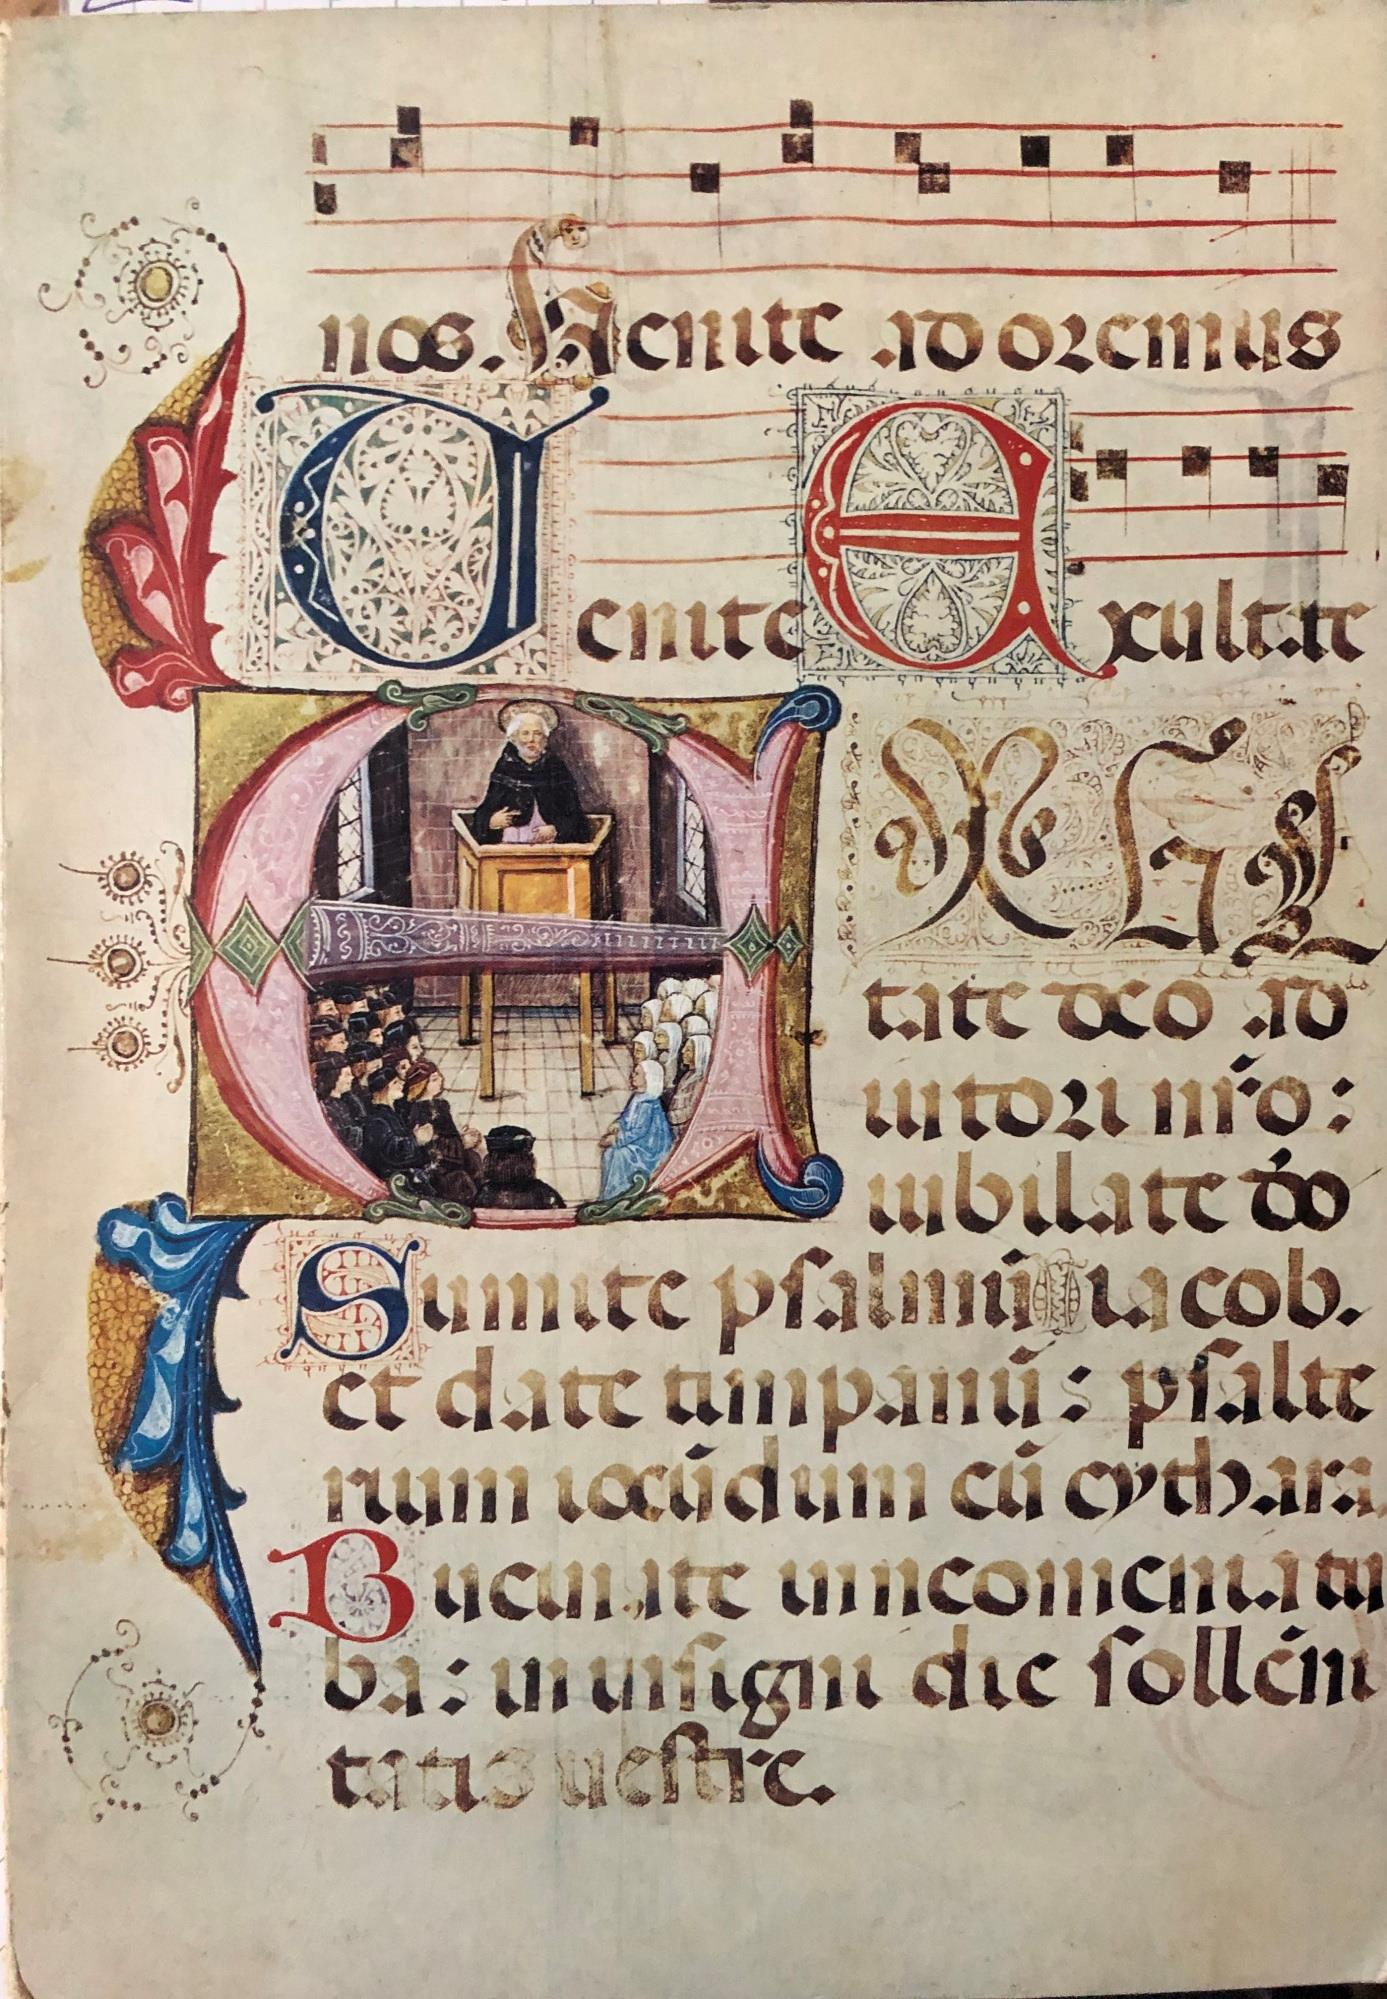 nos. Uenite adoremus
Uenite Exultate
EXUL
tate deo ad
iutori nr̄o:
iubilate dō
Sumite psalmū iacob.
et date timpanū: psalte
rium iocūdum cū cythara
Bucinate in ncomenia tu
ba: in insigni die sollēni
tatis uestre.